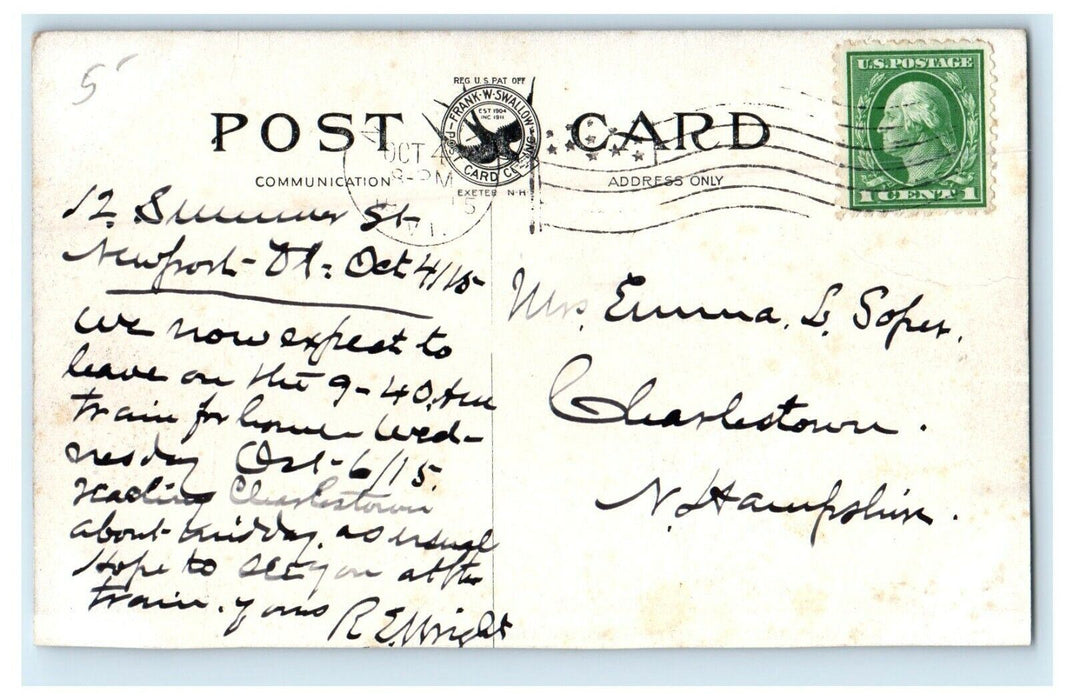 5
REG. U.S. PAT. OFF.
FRANK·W·SWALLOW
POST CARD CO. INC.
EST 1904
INC 1911
EXETER N·H
POST CARD
COMMUNICATION
ADDRESS ONLY
OCT 4
8-PM
15
VT.
U.S. POSTAGE
1 CENT 1
12 Summer St-
Newport- Vt: Oct 4/15
We now expect to
leave on the 9-40 Am
train for home Wed-
nesday Oct-6/15.
reaching Charlestown
about midday. as usual
Hope to see you at the
train. yours R E Wright
Mrs. Emma. L. Soper.
Charlestown.
N. Hampshire.